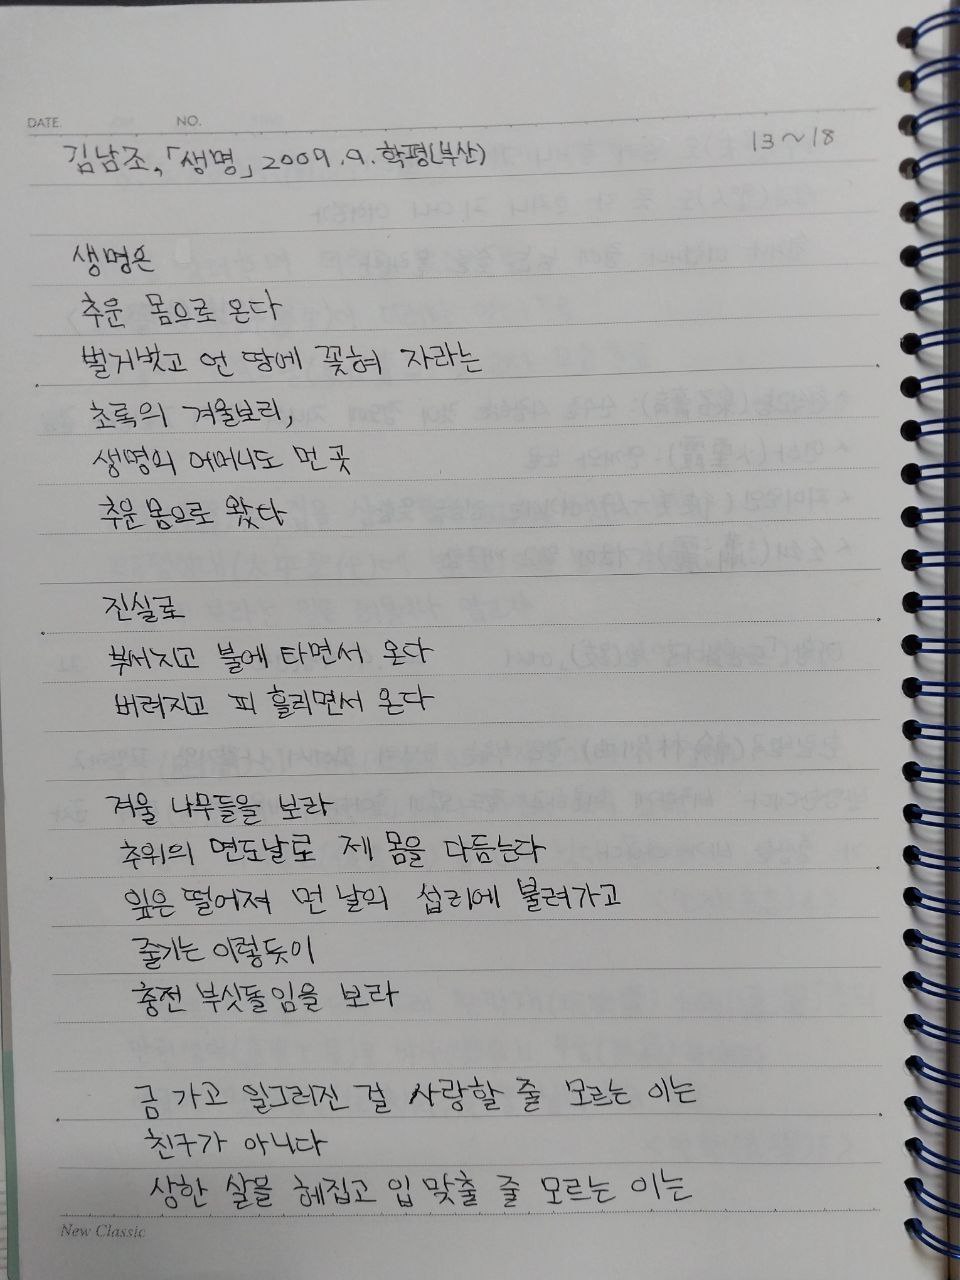 DATE. NO.
김남조, 「생명」, 2009. 9. 학평(부산) 13~18
생명은
추운 몸으로 온다
벌거벗고 언 땅에 꽂혀 자라는
초록의 겨울보리,
생명의 어머니도 먼 곳
추운 몸으로 왔다
진실로
부서지고 불에 타면서 온다
버려지고 피 흘리면서 온다
겨울 나무들을 보라
추위의 면도날로 제 몸을 다듬는다
잎은 떨어져 먼 날의 섭리에 불려가고
줄기는 이렇듯이
충전 부싯돌임을 보라
금 가고 일그러진 걸 사랑할 줄 모르는 이는
친구가 아니다
상한 살을 헤집고 입 맞출 줄 모르는 이는
New Classic